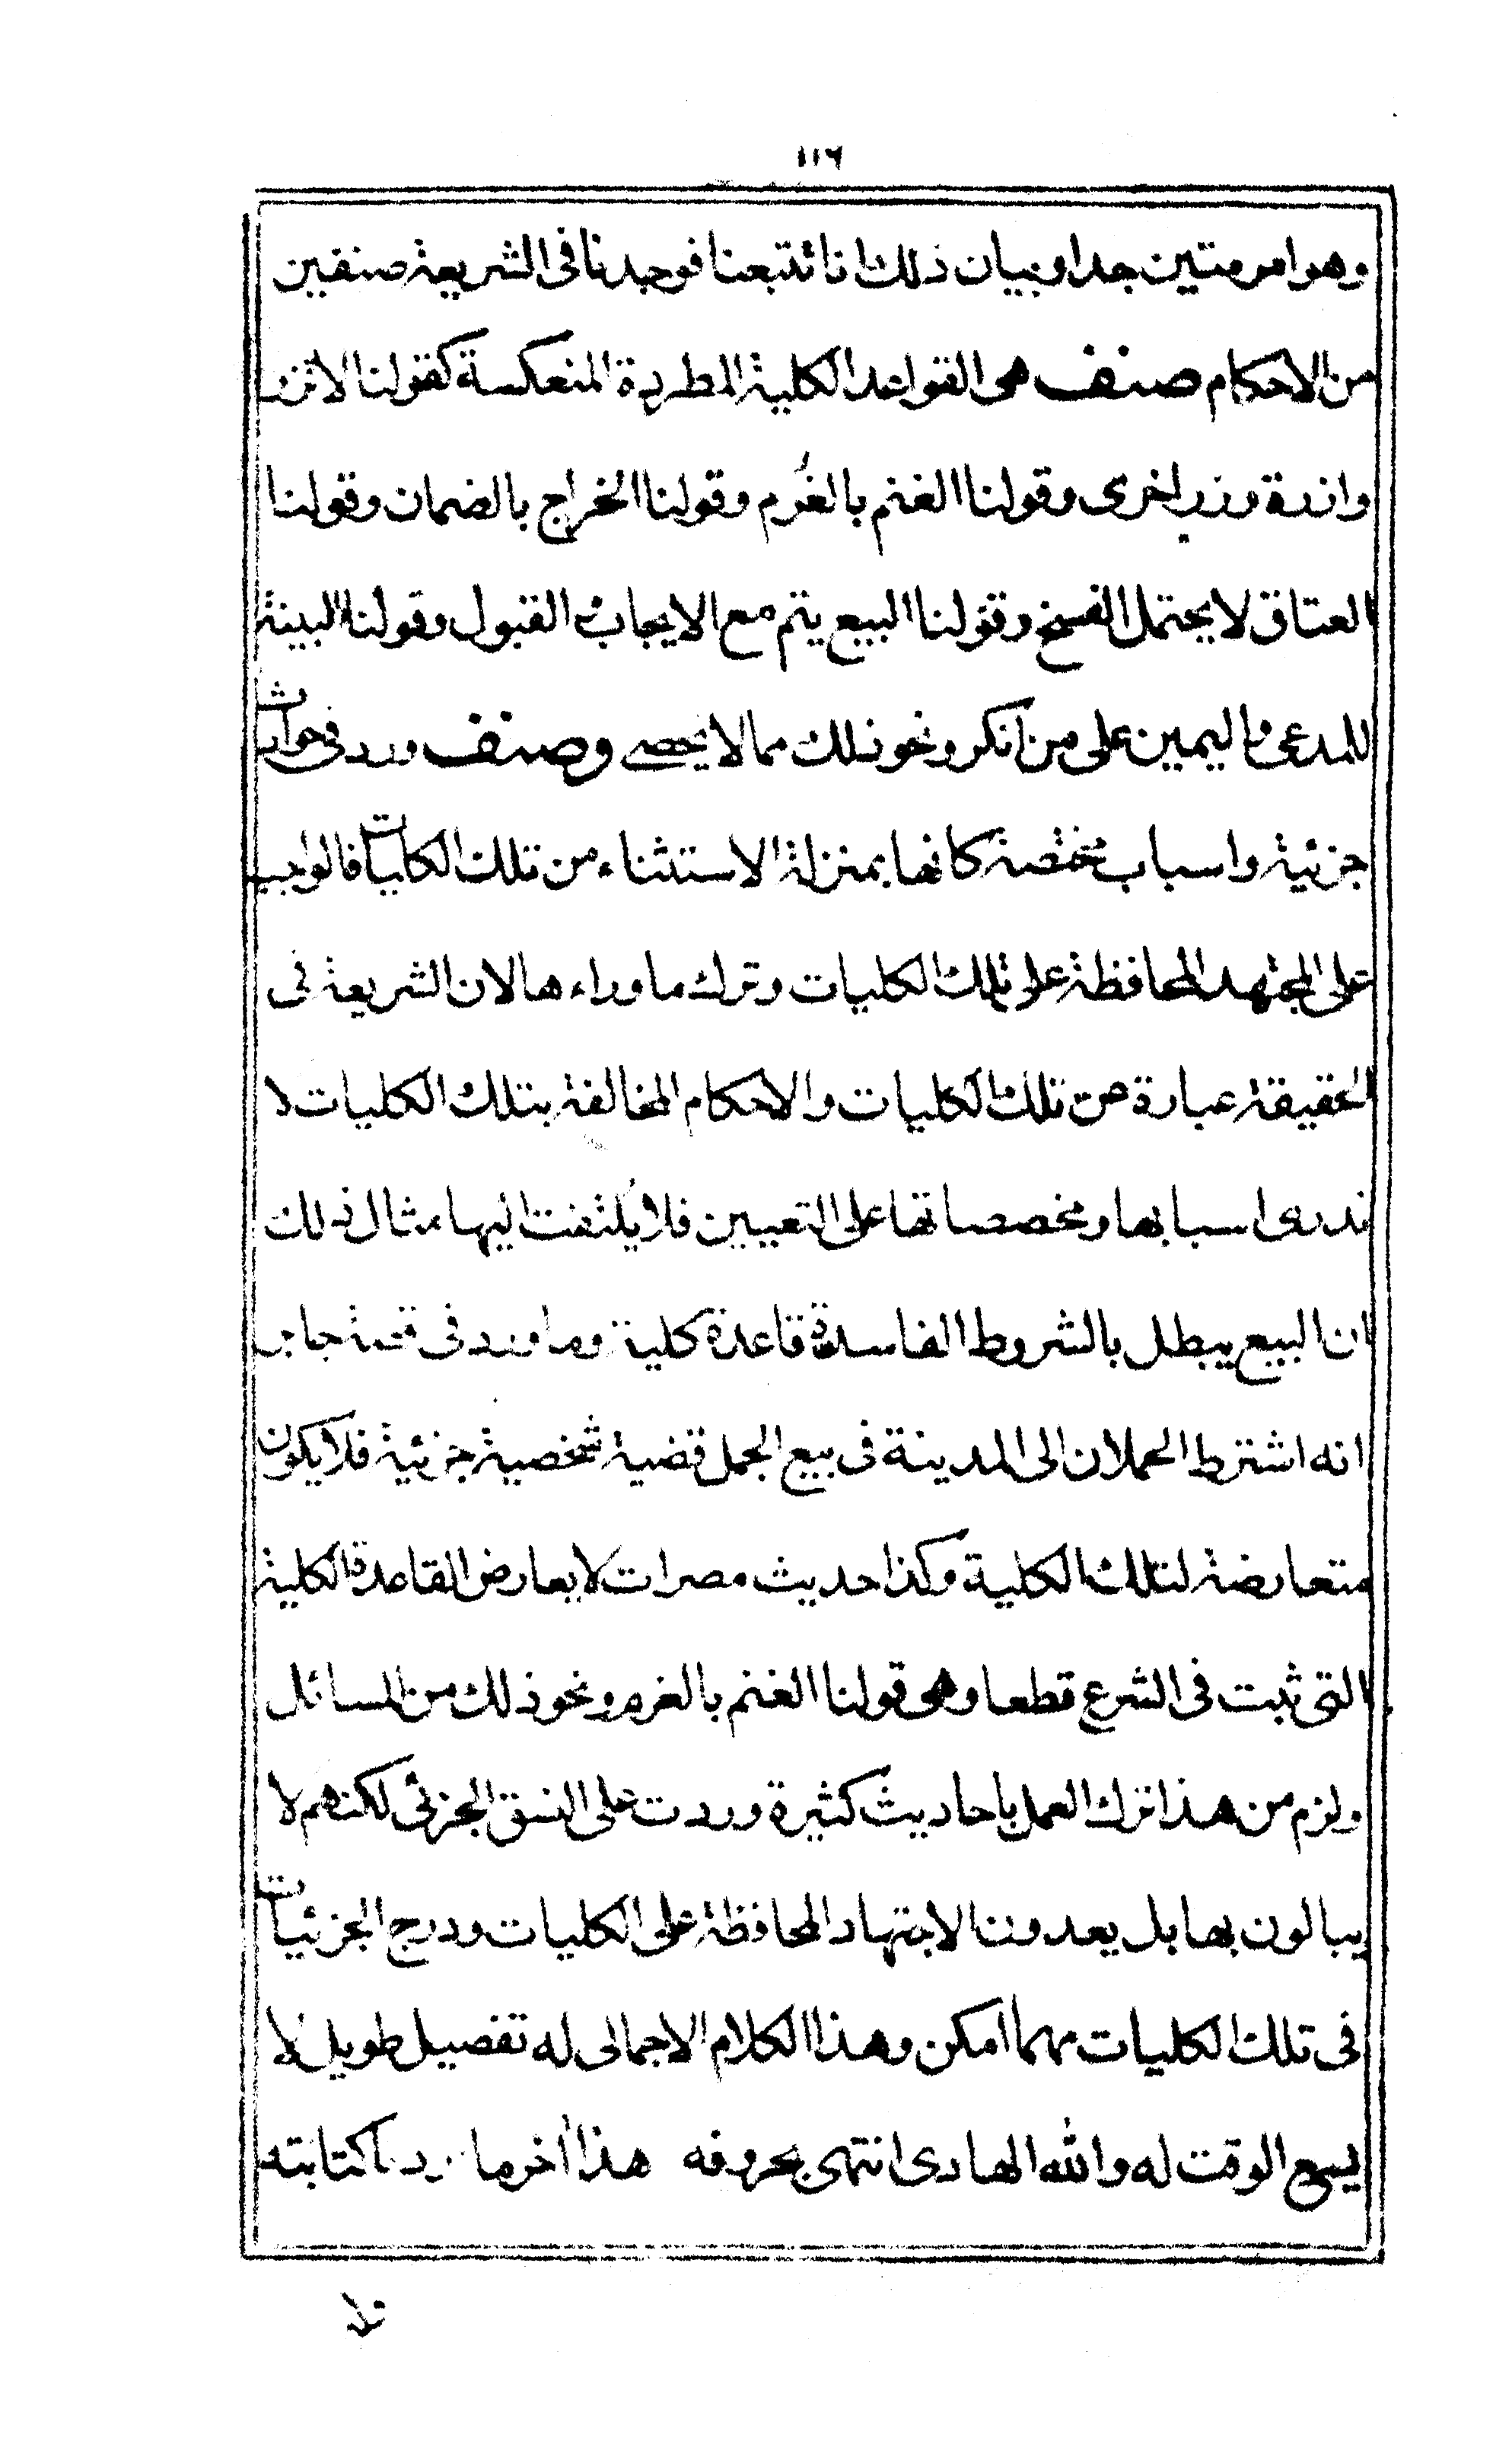 ١١٦
وهو امر متين جدا وبيان ذلك انا تتبعنا فوجدنا فى الشريعة صنفين
من الاحكام صنف هى القواعد الكلية المطردة المنعكسة كقولنا لا تزر
وازرة وزر اخرى وقولنا الغنم بالغُرم وقولنا الخراج بالضمان وقولنا
العتاق لا يحتمل الفسخ وقولنا البيع يتم مع الايجاب والقبول وقولنا البينة
للمدعى واليمين على من انكر ونحو ذلك مما لا يحصى وصنف ورد فى حوادث
جزئية واسباب مختصة كانها بمنزلة الاستثناء من تلك الكليات فالواجب
على المجتهد المحافظة على تلك الكليات وترك ما وراءها لان الشريعة فى
الحقيقة عبارة عن تلك الكليات والاحكام المخالفة بتلك الكليات لا
ندرى اسبابها ومخصصاتها على التعيين فلا يُلتفت اليها مثال ذلك
ان البيع يبطل بالشروط الفاسدة قاعدة كلية وما ورد فى قصة جابر
انه اشترط الحملان الى المدينة فى بيع الجمل قضية شخصية جزئية فلا يكون
متعارضة لتلك الكلية وكذا حديث مصرات لا يعارض القاعدة الكلية
التى ثبت فى الشرع قطعا وهى قولنا الغنم بالغرم ونحو ذلك من المسائل
ولزم من هذا ترك العمل باحاديث كثيرة وردت على النسق الجزئى لكنهم لا
يبالون بها بل يعدون الاجتهاد المحافظة على الكليات ودرج الجزئيات
فى تلك الكليات مهما امكن وهذا الكلام الاجمالى له تفصيل طويل لا
يسع الوقت له والله الهادى انتهى بحروفه هذا أخر ما كتابته